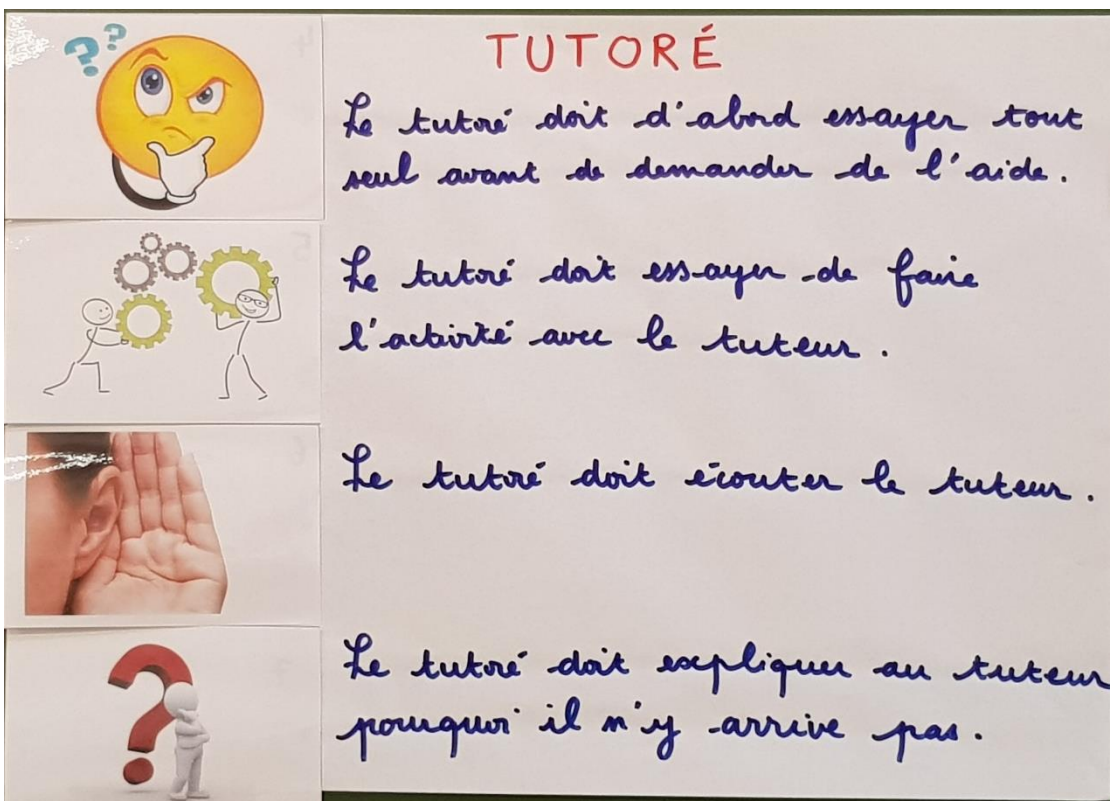 TUTORÉ
Le tutoré doit d'abord essayer tout
seul avant de demander de l'aide.
Le tutoré doit essayer de faire
l'activité avec le tuteur.
Le tutoré doit écouter le tuteur.
Le tutoré doit expliquer au tuteur
pourquoi il n'y arrive pas.